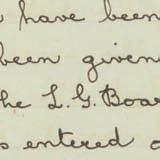 have been
been given
the L. G. Boar
s entered